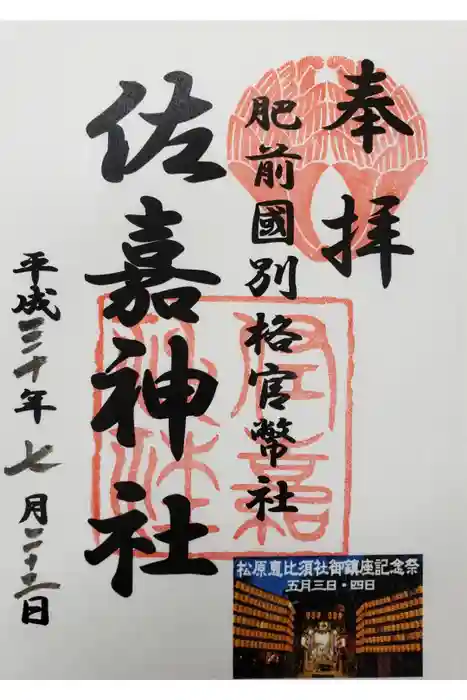 奉拝
肥前國別格官幣社
佐嘉神社
平成三十年七月二十二日
佐嘉
神社
松原恵比須社御鎮座記念祭
五月三日・四日